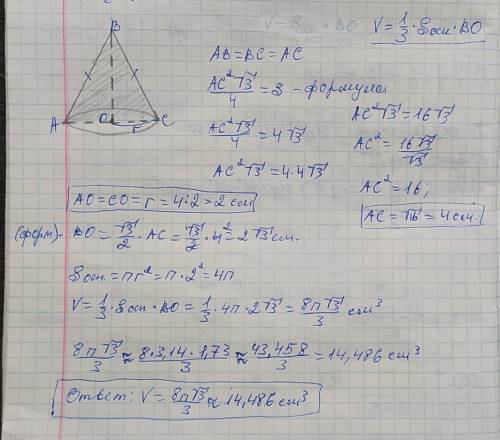 V = 1/3 · Sосн · BO
B
AB = BC = AC
AC²√3/4 = S – формула
AC²√3/4 = 4√3
AC²√3 = 4·4√3
AC²√3 = 16√3
AC² = 16√3/√3
AC² = 16;
AC = √16 = 4 см.
A O r C
AO = CO = r = 4:2 = 2 см
(форм) - BO = √3/2 · AC = √3/2 · 4² = 2√3 см.
Sосн. = πr² = π·2² = 4π
V = 1/3 · Sосн · BO = 1/3 · 4π · 2√3 = 8π√3/3 см³
8π√3/3 ≈ 8·3,14·1,73/3 ≈ 43,458/3 = 14,486 см³
Ответ: V = 8π√3/3 ≈ 14,486 см³